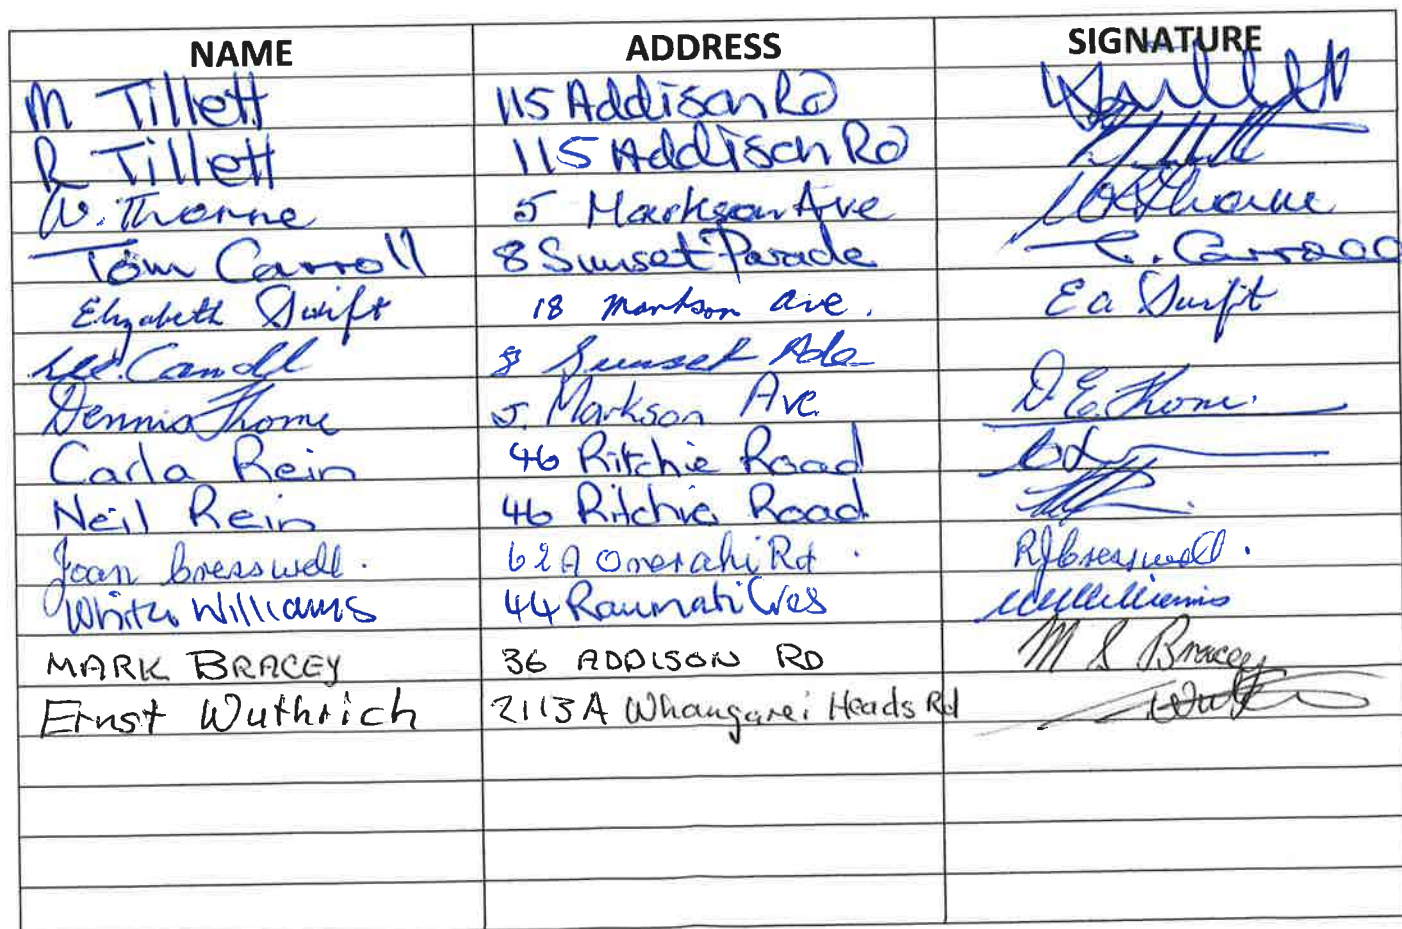 NAME ADDRESS SIGNATURE
M Tillett 115 Addison Rd
R Tillett 115 Addison Rd
W. Thorne 5 Markson Ave
Tom Carroll 8 Sunset Parade T. Carroll
Elizabeth Swift 18 Markson Ave. E a Swift
8 Sunset Pde
Dennis Thorne 5. Markson Ave D E Thorne
Carla Rein 46 Ritchie Road
Neil Rein 46 Ritchie Road
Joan Cresswell. 62A Onerahi Rd. RJ Cresswell.
Williams 44 Raumati Cres
MARK BRACEY 36 ADDISON RD M S Bracey
Ernst Wuthrich 2113A Whangarei Heads Rd